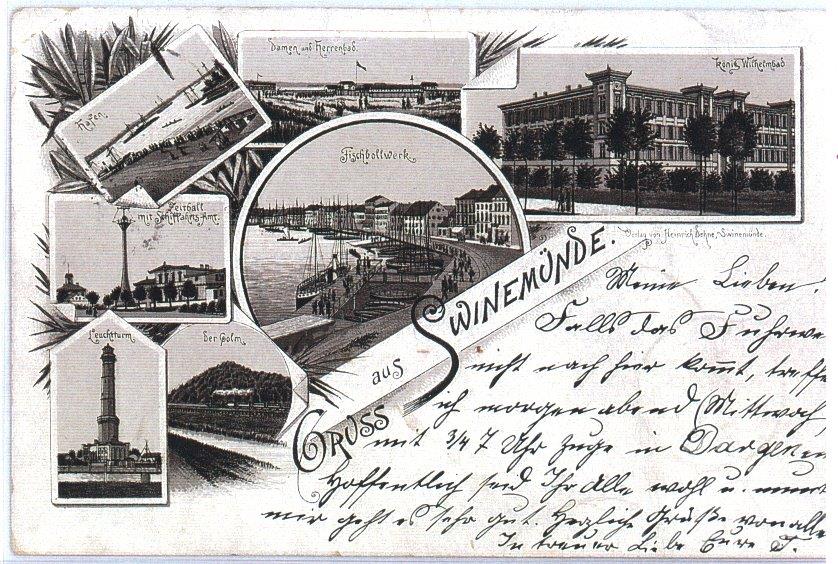 Damen und Herrenbad.
König Wilhelmbad
Hafen.
Fischbollwerk.
Zeitball
mit Schiffahrts-Amt.
Verlag von Heinrich Dehne, Swinemünde.
Leuchtturm.
Der Golm.
GRUSS aus SWINEMÜNDE.
Meine Lieben!
Falls das Fuhrwe
nicht nach hier kommt, treffe
ich morgen abend (Mittwoch,
mit 3/4 7 Uhr Zuge in Dargen
Hoffentlich seid Ihr Alle wohl u.
mir geht es sehr gut. Herzliche Grüße von alle
In treuer Liebe Eure T.